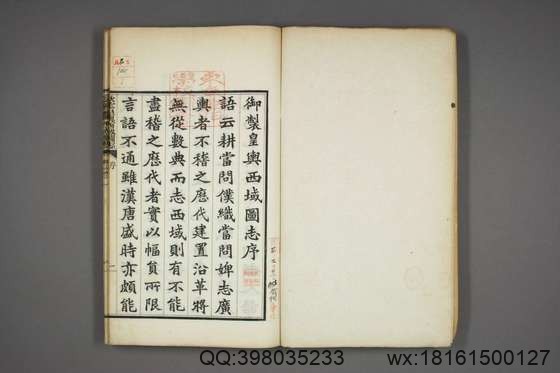 御製皇輿西域圖志序
語云耕當問僕織當問婢志廣
輿者不稽之歷代建置沿革將
無從數典而志西域則有不能
盡稽之歷代者實以幅員所限
言語不通雖漢唐盛時亦頗能
QQ:398035233
wx:18161500127